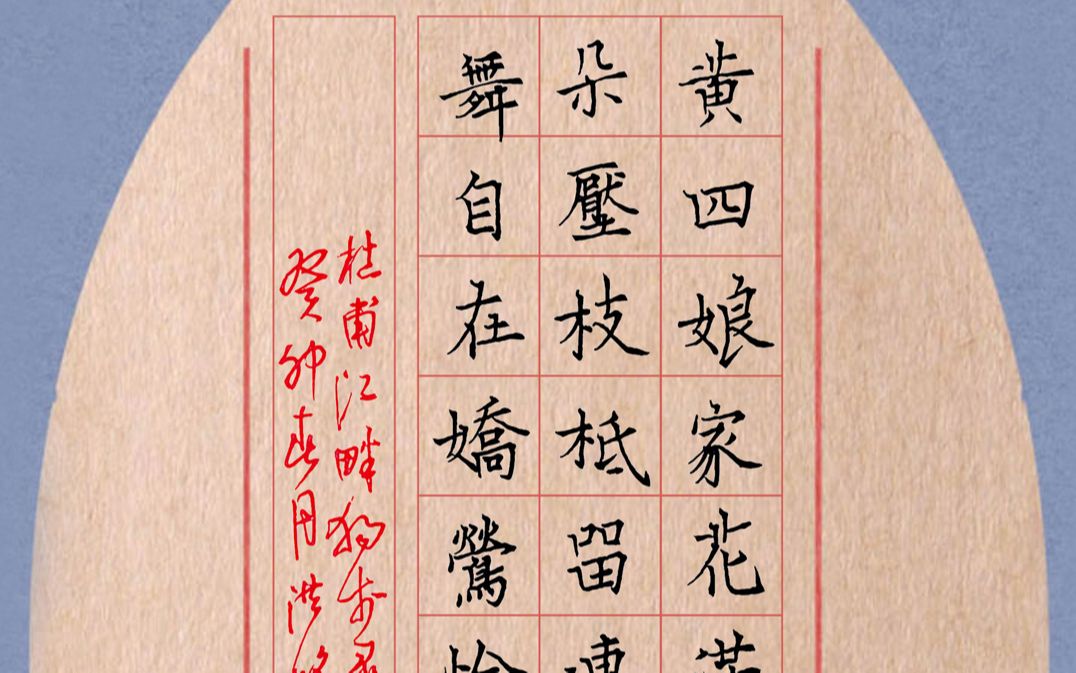 黄四娘家花
朵壓枝柢留
舞自在嬌鶯
杜甫江畔獨步
癸卯春月洪